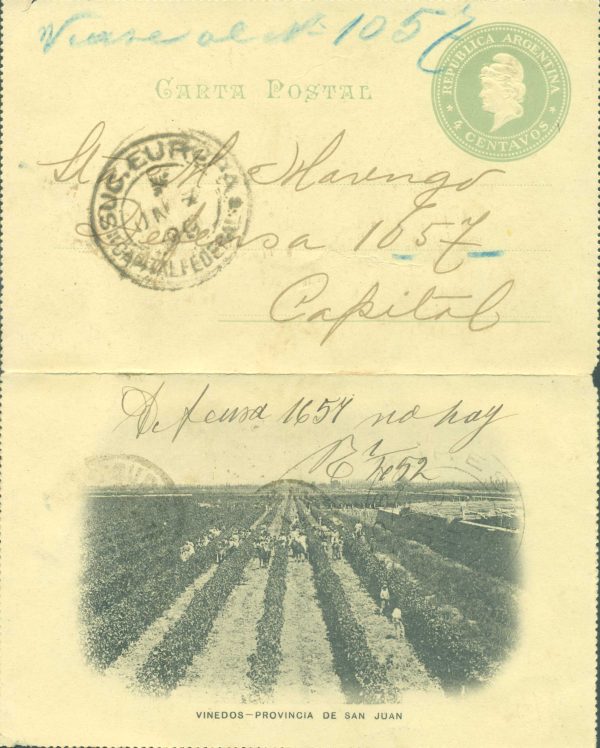 Vease al No 1057
CARTA POSTAL
REPUBLICA ARGENTINA
4 CENTAVOS
SUC. EUROPA
CAPITAL FEDERAL
St. M. Marengo
Defensa 1057
Capital
Defensa 1657 no hay
VIÑEDOS—PROVINCIA DE SAN JUAN